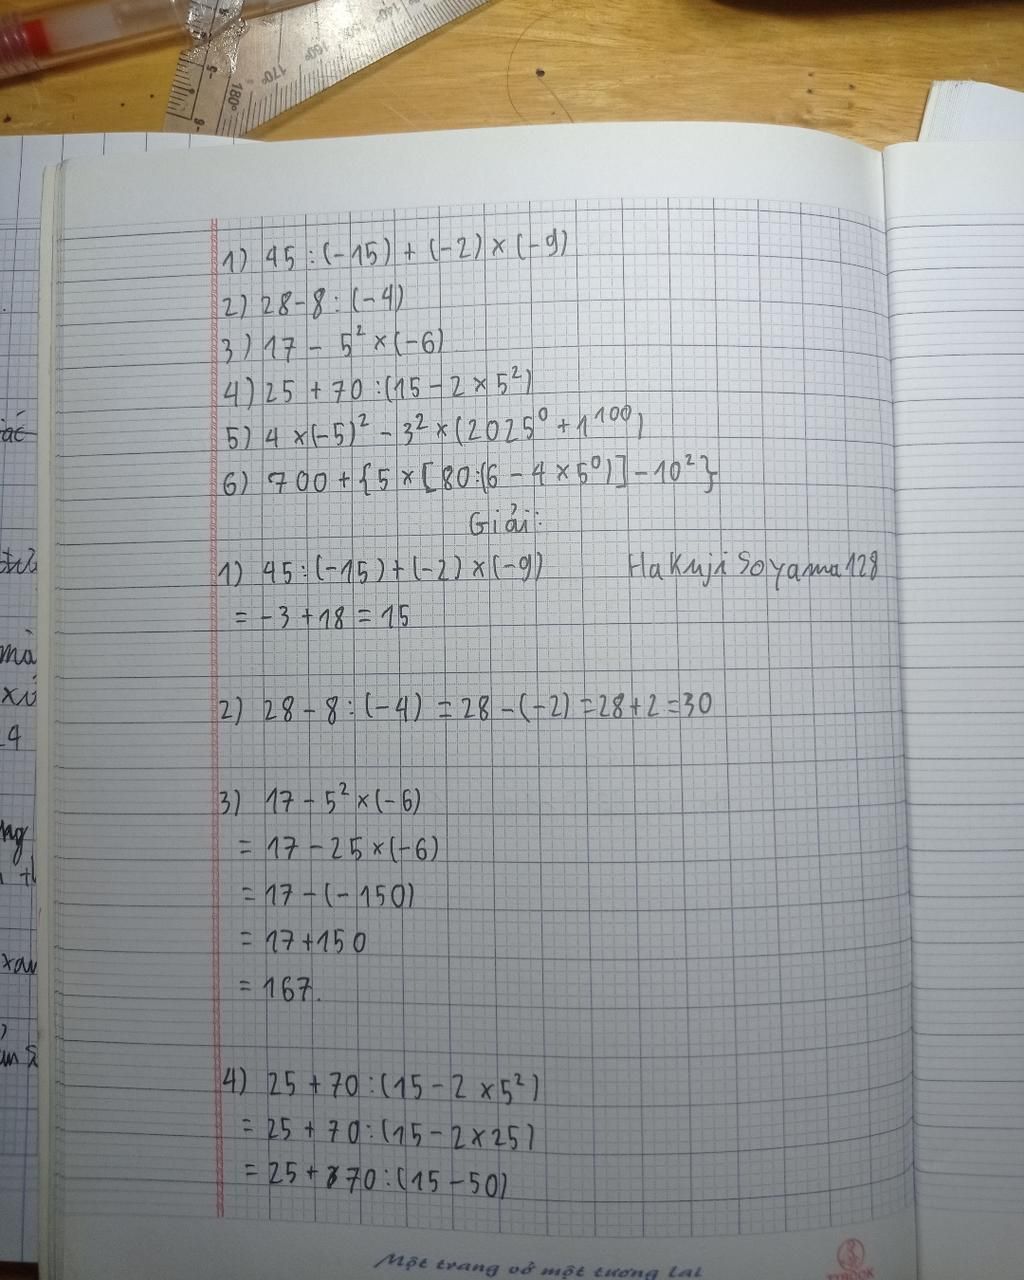 180° 170° 160° 150° 140°
1) 45 : (-15) + (-2) × (-9)
2) 28 - 8 : (-4)
3) 17 - 5² × (-6)
4) 25 + 70 : (15 - 2 × 5²)
5) 4 × (-5)² - 3² × (2025⁰ + 1¹⁰⁰)
6) 700 + {5 × [80 : (6 - 4 × 5⁰)] - 10²}
Giải:
1) 45 : (-15) + (-2) × (-9) Hakuji Soyama 128
= -3 + 18 = 15
2) 28 - 8 : (-4) = 28 - (-2) = 28 + 2 = 30
3) 17 - 5² × (-6)
= 17 - 25 × (-6)
= 17 - (-150)
= 17 + 150
= 167.
4) 25 + 70 : (15 - 2 × 5²)
= 25 + 70 : (15 - 2 × 25)
= 25 + 70 : (15 - 50)
Một trang vở một tương lai